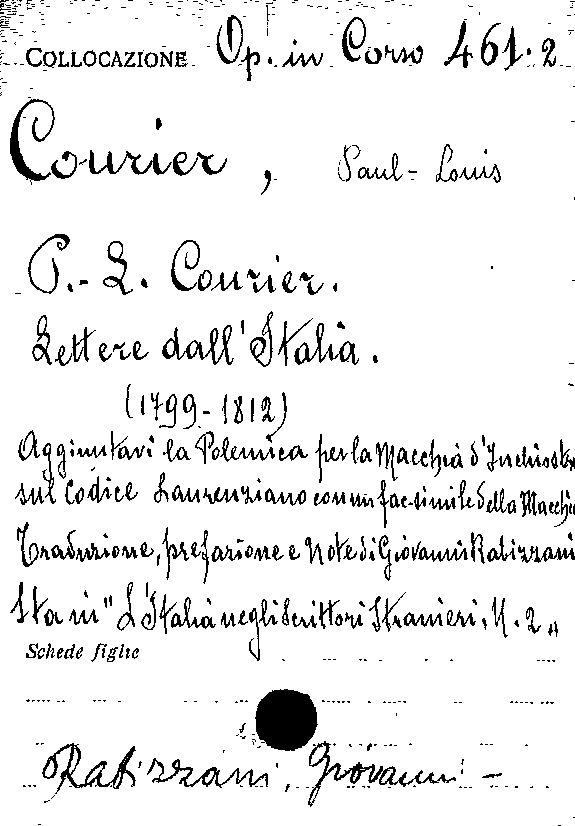 COLLOCAZIONE Op. in Corso 461.2
Courier, Paul-Louis
P.-L. Courier.
Lettere dall'Italia.
(1799-1812)
Aggiuntavi la Polemica per la Macchia d'Inchiostro
sul Codice Laurenziano con un fac-simile della Macchia
Traduzione, prefazione e Note di Giovanni Rabizzani
Sta in "L'Italia negli Scrittori Stranieri, N. 2"
Schede figlie
Rabizzani, Giovanni -